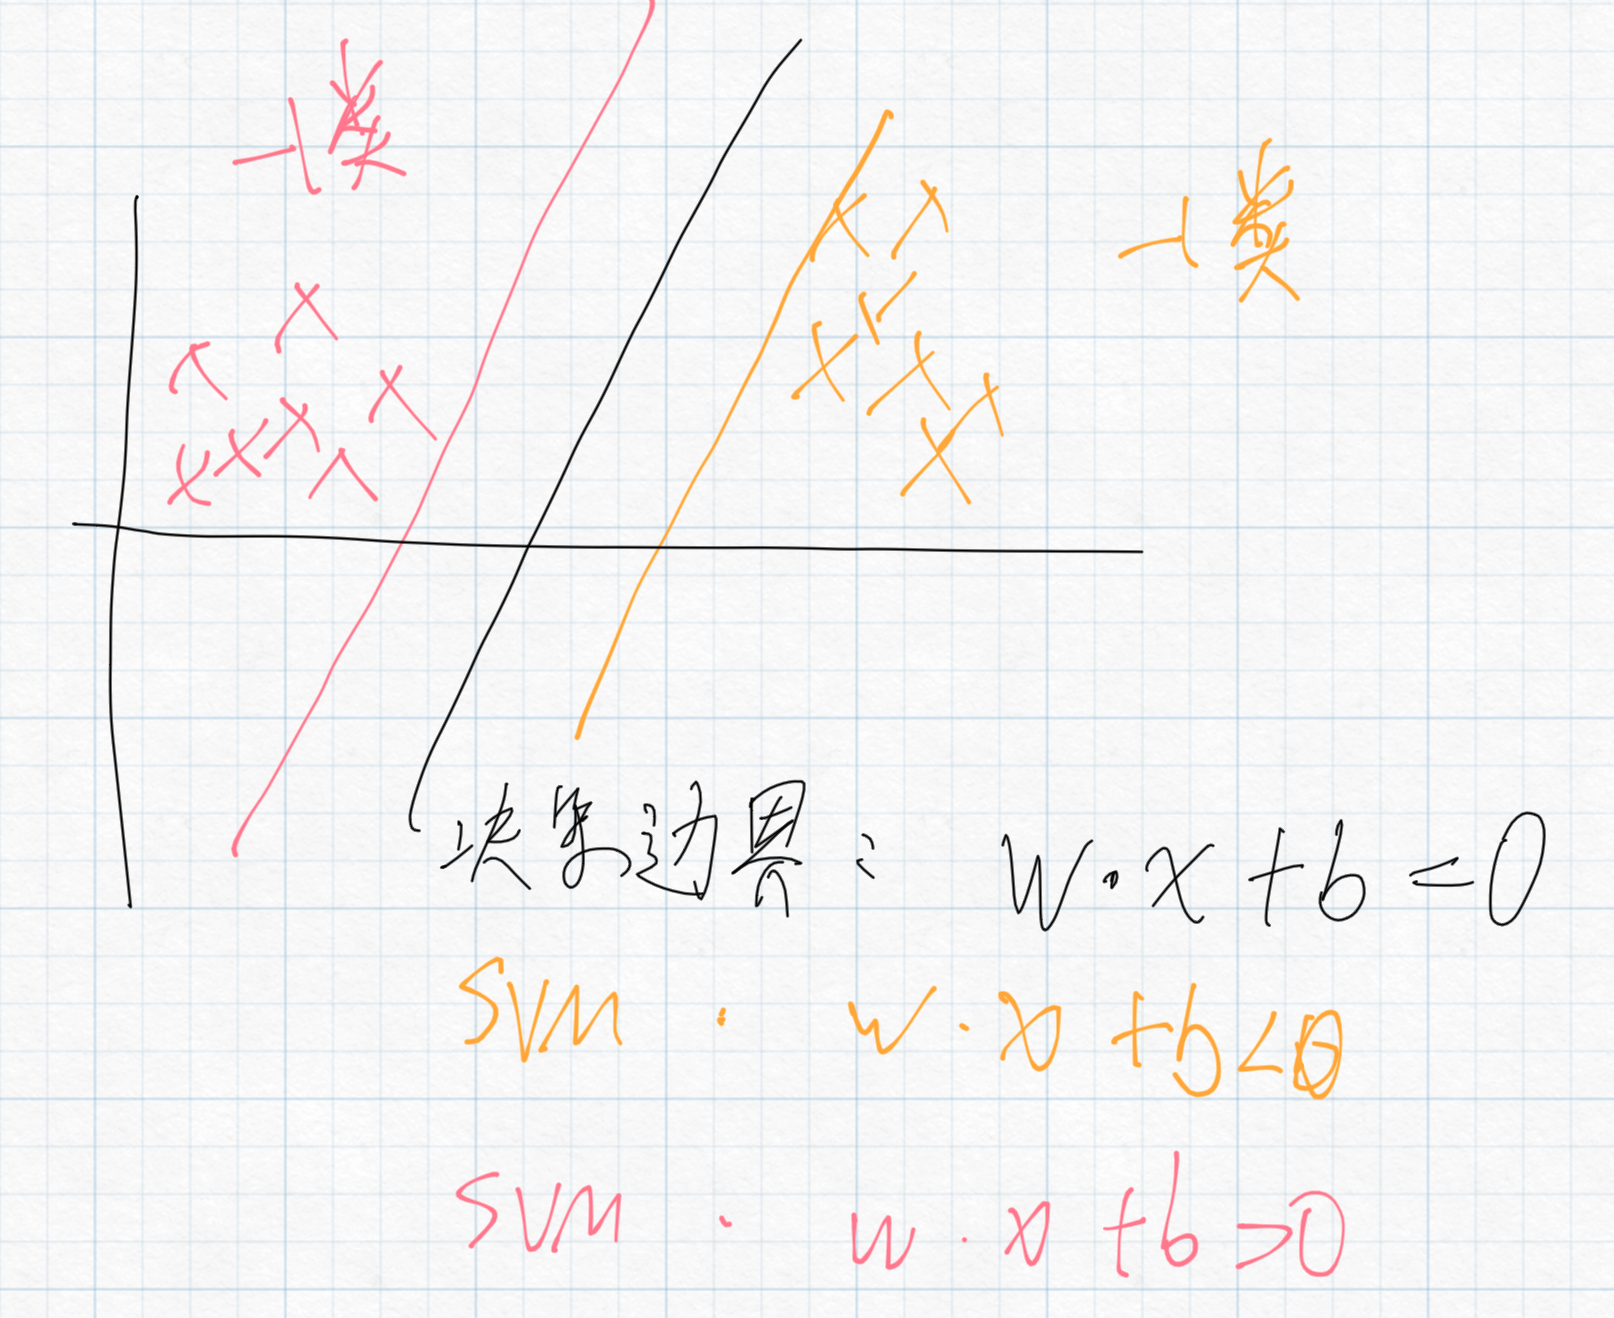 -1类
-1类
决策边界: w·x+b=0
SVM: w·x+b<0
SVM: w·x+b>0